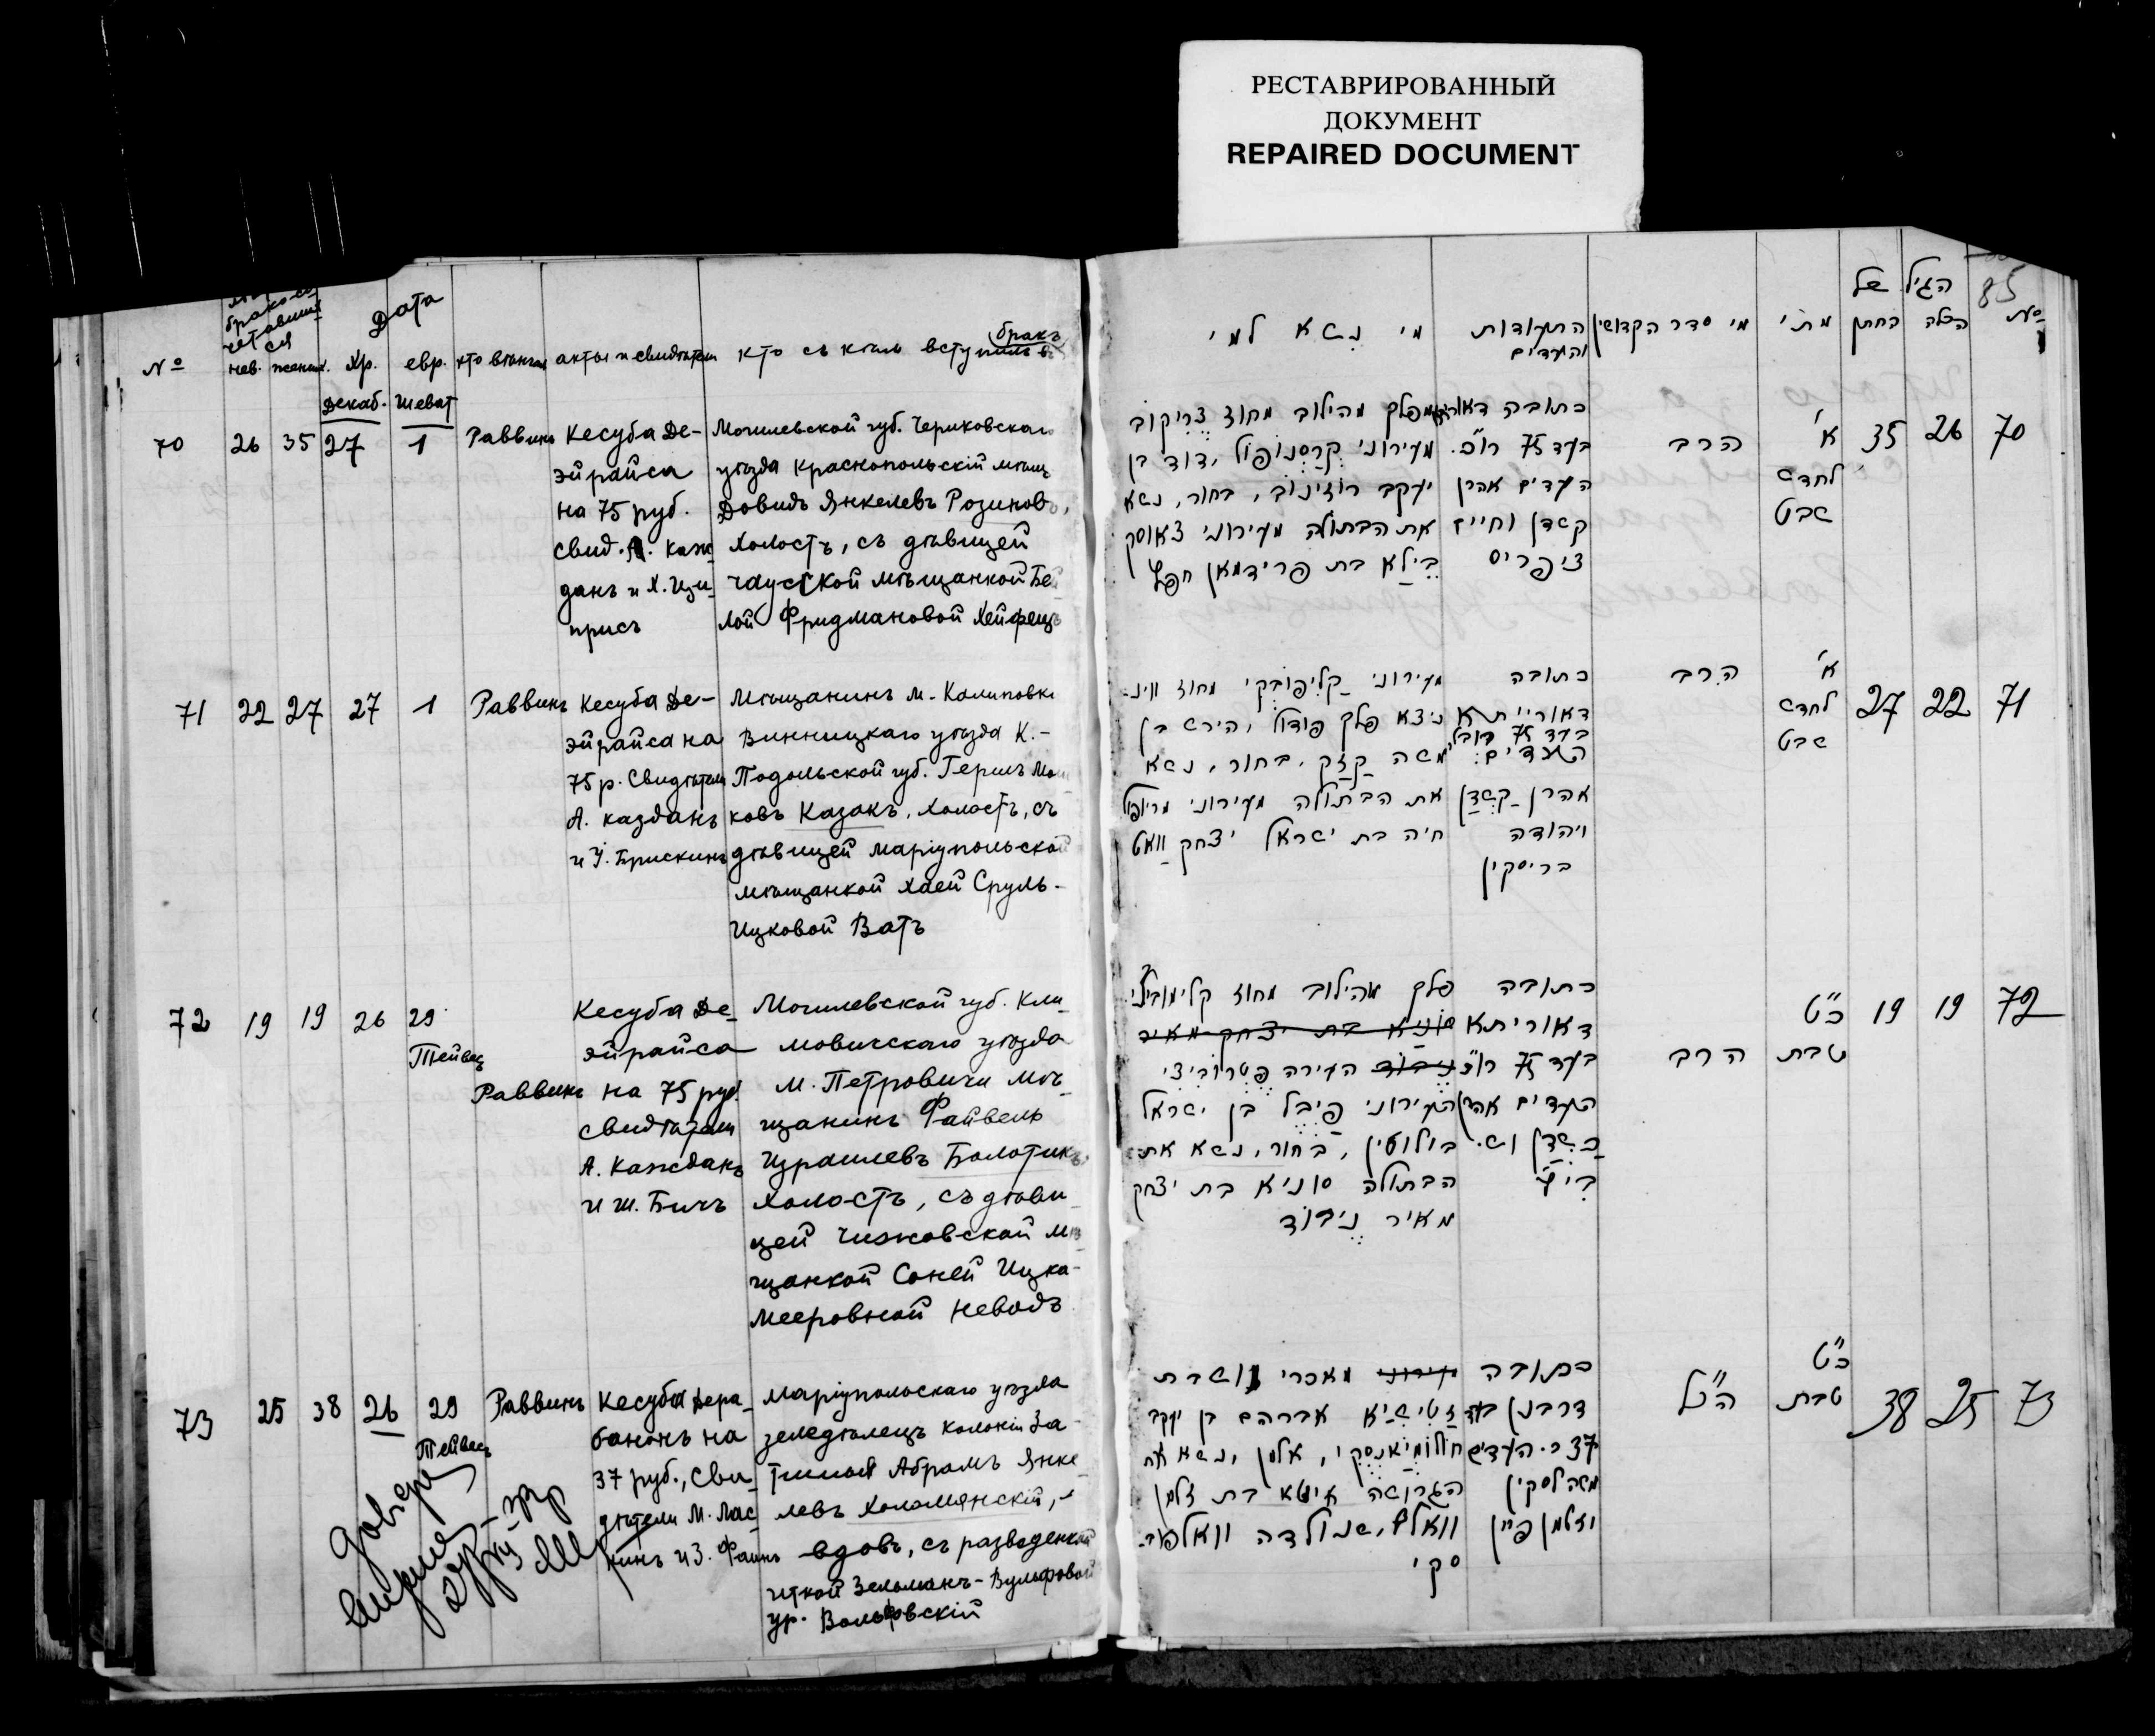 РЕСТАВРИРОВАННЫЙ
ДОКУМЕНТ
REPAIRED DOCUMENT
Дата
бракъ
№ нев. жених. Хр. евр. кто вѣнчал акты и свидѣтели кто съ кѣмъ вступилъ въ
Декаб. Шеват
70 26 35 27 1 Раввинъ
Кесуба Де-
эйрайса
на 75 руб.
свид. А. Каж
данъ и Х. Ци-
присъ
Могилевской губ. Чериковскаго
уѣзда Краснопольскій мѣщ
Довидъ Янкелевъ Розиновъ,
холостъ, съ дѣвицей
чаусской мѣщанкой Бей
лой Фридмановой Хейфецъ
71 22 27 27 1 Раввинъ
Кесуба Де-
эйрайса на
75 р. Свидѣтели
А. Казданъ
и У. Брискинъ
Мѣщанинъ м. Калиповки
Винницкаго уѣзда К.-
Подольской губ. Гершъ Мош
ковъ Казакъ, холостъ, съ
дѣвицей маріупольской
мѣщанкой Хаей Сруль-
Ицковой Ватъ
72 19 19 26 29
Тейвес
Раввинъ
Кесуба Де-
эйрайса
на 75 руб.
свидѣтели
А. Кажданъ
и Ш. Бичъ
Могилевской губ. Кли
мовичскаго уѣзда
м. Петровичи мѣ-
щанинъ Файвель
Израилевъ Болотинъ,
холостъ, съ дѣви-
цей Чижовской мѣ
щанкой Соней Ицка-
Мееровной Неводъ
73 25 38 26 29 Раввинъ
Тейвесъ
Кесуба Дера-
бононъ на
37 руб., Сви-
дѣтели М. Лас-
кинъ и З. Файнъ
Маріупольскаго уѣзда
земледѣлецъ колоніи За-
тишья Абрамъ Янке
левъ Холомянскій,
вдовъ, съ разведенной
Иткой Зельманъ-Вульфовой
ур. Вольфовскій
85
הגיל של
№ הכלה החתן מתי מי סדר הקדושין התעודות והעדים מי נשא למי
70 26 35
א'
לחדש
שבט
הרב
כתובה
בעד 75 רו"כ.
העדים אהרן
קשדן וחיים
ציפריס
מפלך מהילוב מחוז צריקוב
מעירוני קרסנופול, דוד בן
יעקב רוזינוב, בחור, נשא
את הבתולה מעירוני צאוסק
בילא בת פרידמאן חפץ
71 22 27
א'
לחדש
שבט
הרב
כתובה
דאורייתא
בעד 75 רובל
העדים:
אהרן קשדן
ויהודה
בריסקין
מעירוני קליפובקי מחוז ווינ-
ניצא פלך פודול, הירש בן
משה קזק, בחור, נשא
את הבתולה מעירוני מריופול
חיה בת ישראל יצחק וואט
72 19 19
כ"ט
טבת
הרב
כתובה
דאוריתא
בעד 75 רו"כ
העדים אהרן
כשדן וש.
ביץ
פלך מהילוב מחוז קלימוביצי
סוניא בת יצחק מאיר
ניבוד העירה פטרוביצי
העירוני פיבל בן ישראל
בולוטין, בחור, נשא את
הבתולה סוניא בת יצחק
מאיר ניבוד
73 25 38
כ"ט
טבת
הנ"ל
כתובה
דרבנן בעד
37 ר. העדים
משה לסקין
וזלמן פיין
עירוני מאכרי מושבת
זטישיא אברהם בן יעקב
חולומיאנסקי, אלמן, נשא את
הגרושה איטא בת זלמן
וואלף, שנולדה וואלפוב-
סקי